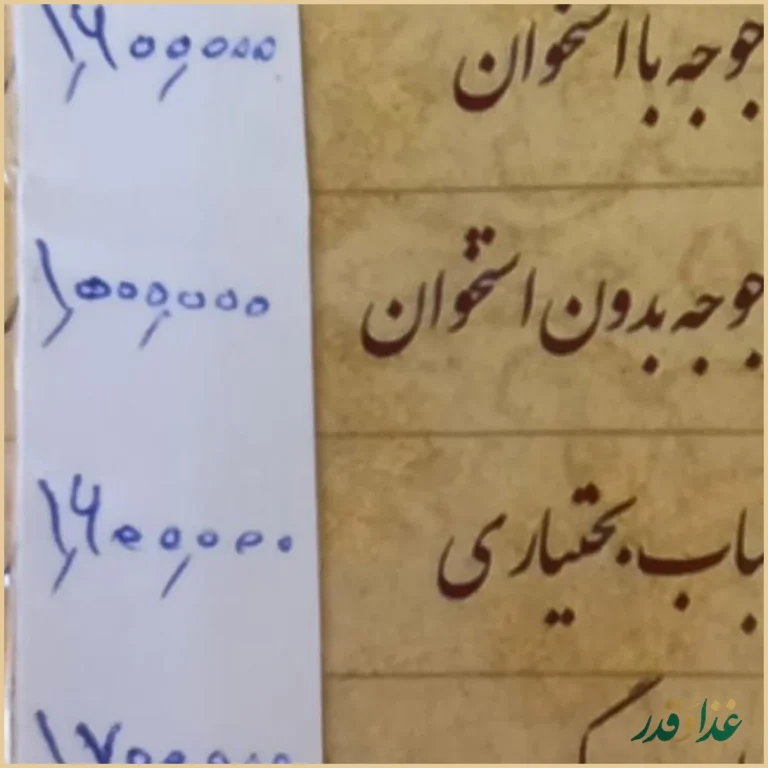 جوجه با استخوان ۱,۶۰۰,۰۰۰
جوجه بدون استخوان ۱,۰۰۰,۰۰۰
باب بختیاری ۱,۶۰۰,۰۰۰
۱,۷۰۰,۰۰۰
غذا قدر